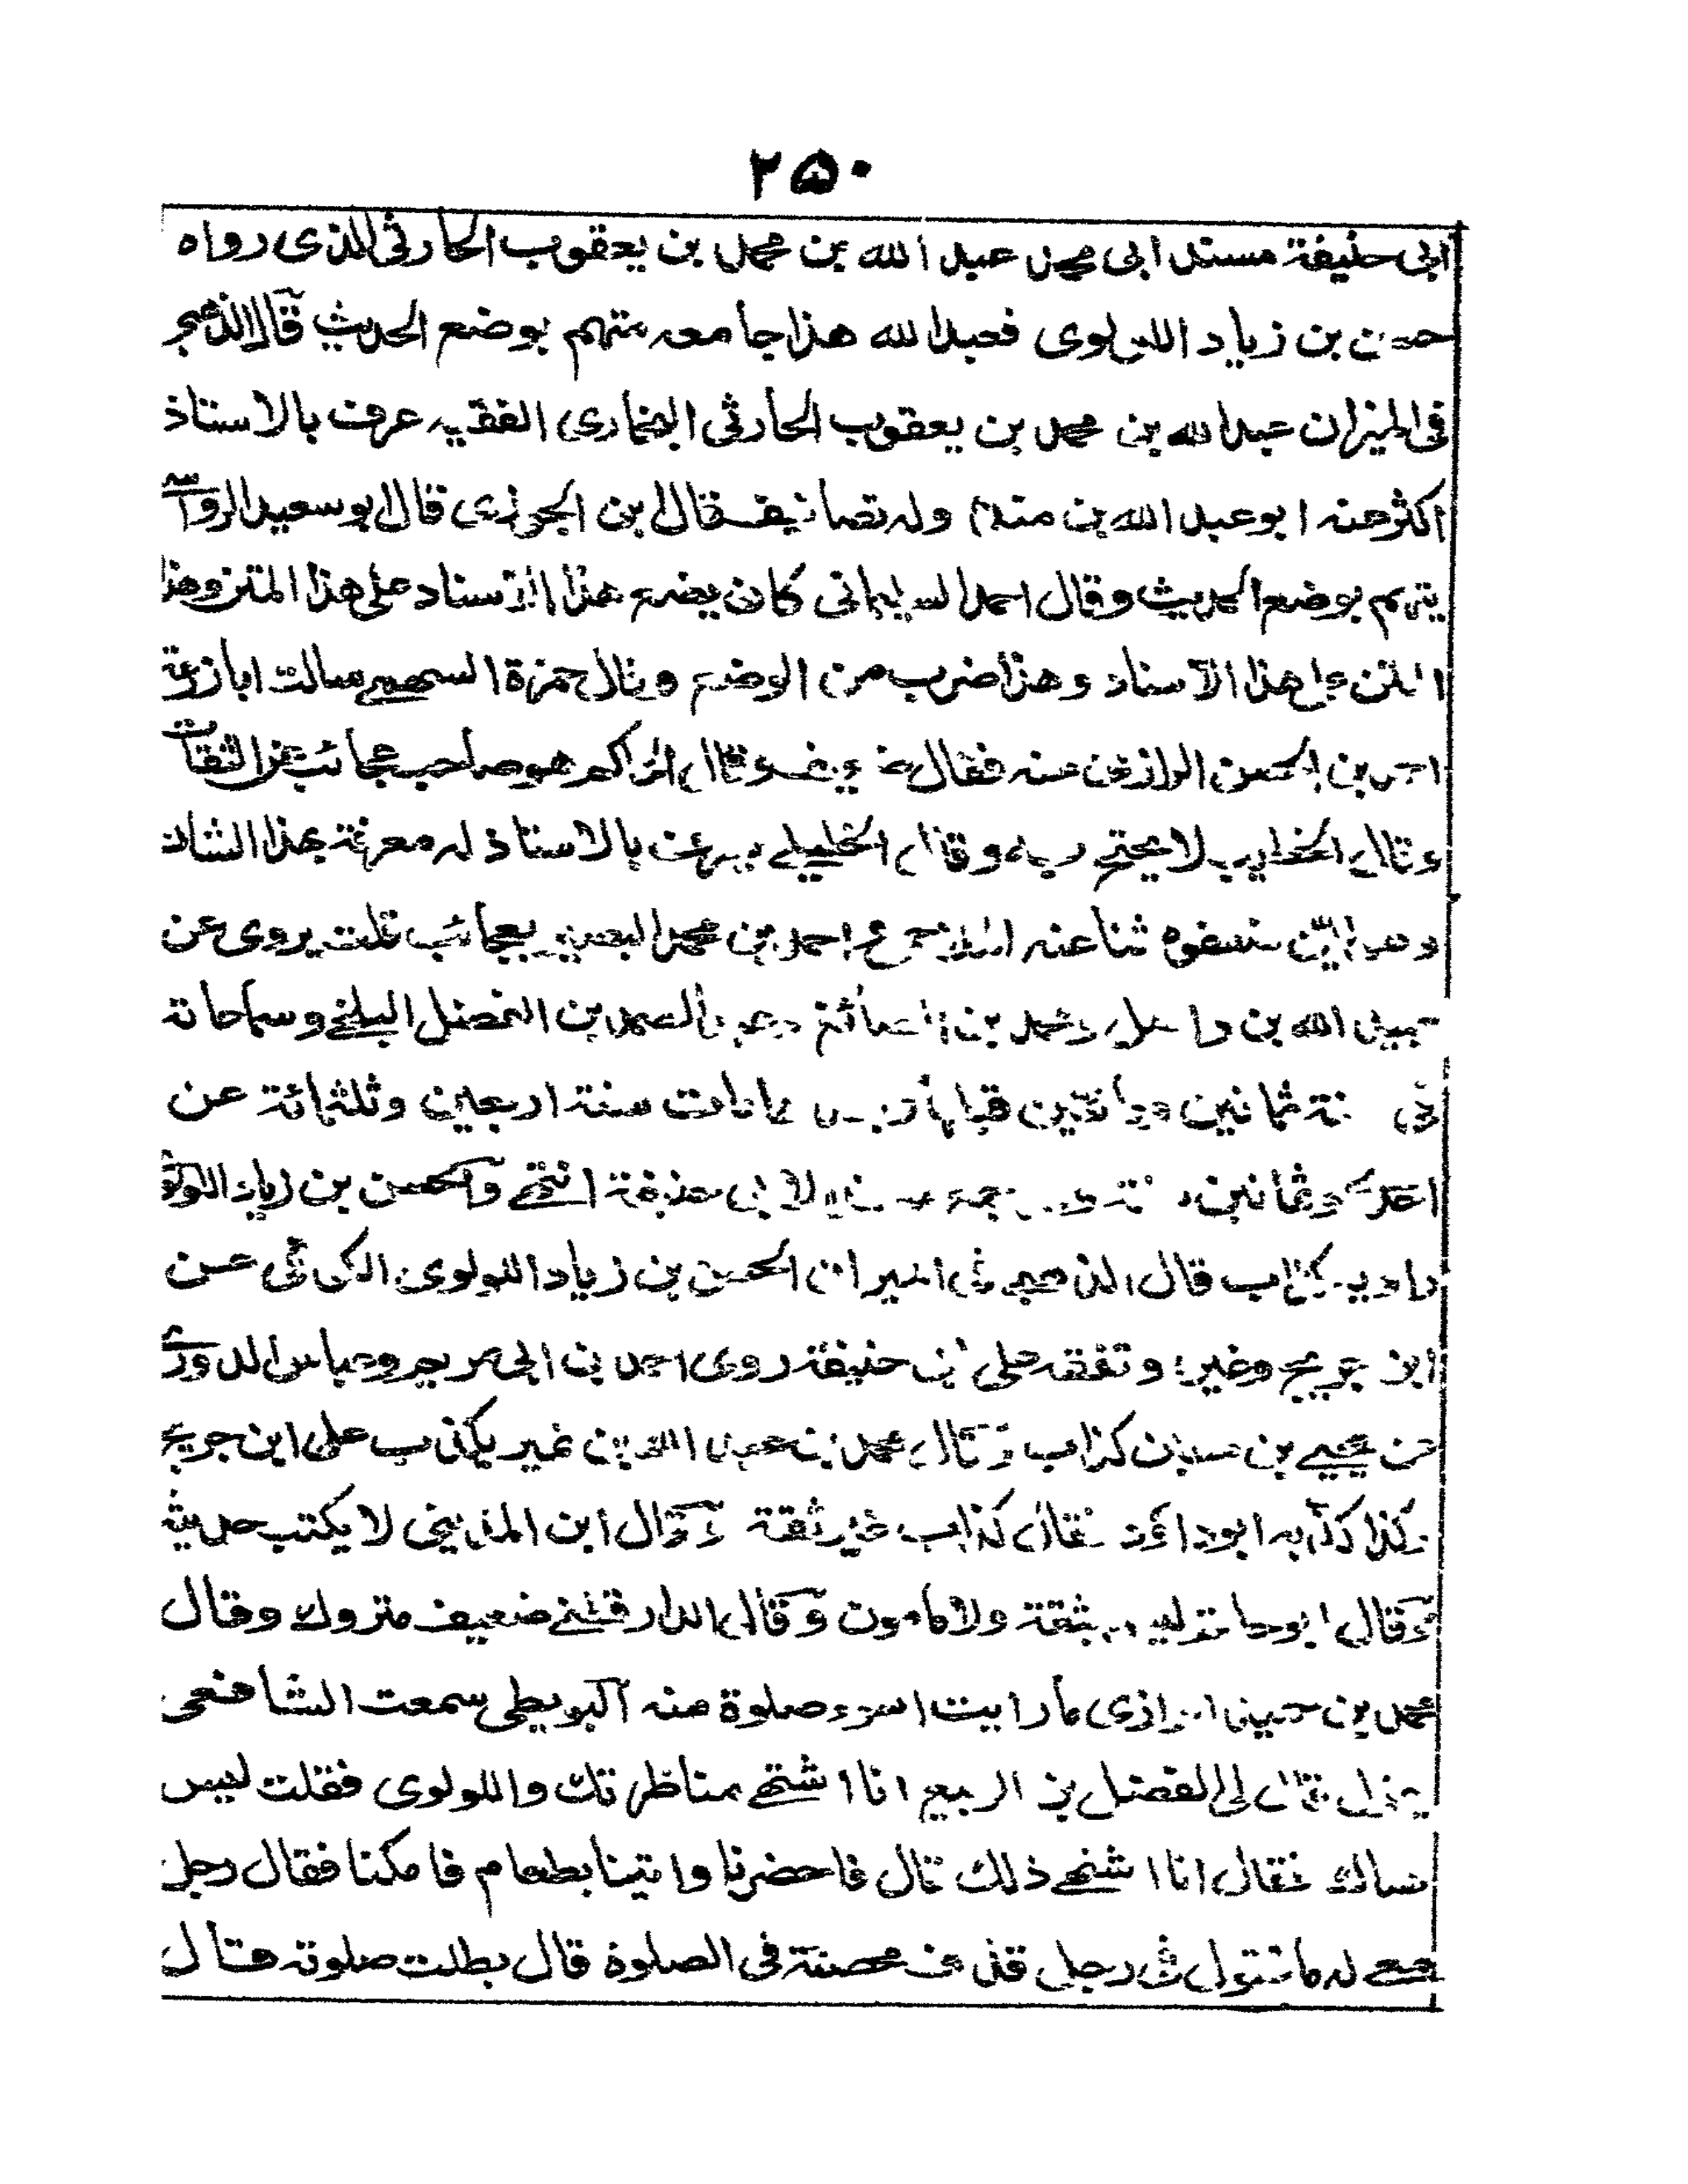 ۲۵۰
ابی حنیفة مسند ابی محمد عبد الله بن محمد بن یعقوب الحارثی الذی رواه
حسن بن زیاد اللولوی فعبد الله هذا جامعه متهم بوضع الحدیث قال الذهبی
فی المیزان عبد الله بن محمد بن یعقوب الحارثی البخاری الفقیه عرف بالاستاذ
اکثر عنه ابو عبد الله بن مندة وله تصانیف قال ابن الجوزی قال ابو سعید الرواس
یتهم بوضع الحدیث وقال احمد السلیمانی کان یضع هذا الاسناد علی هذا المتن وهذا
المتن علی هذا الاسناد وهذا ضرب من الوضع وقال حمزة السهمی سالت ابازرعة
احمد بن الحسن الرازی عنه فقال ضعیف وقال الحاکم هو صاحب عجائب عن الثقات
وقال الخطیب لا یحتج به وقال الخلیلی یعرف بالاستاذ له معرفة بهذا الشان
وهو لین ضعفوه ثنا عنه الملاحمی واحمد بن محمد البصیر بعجائب قلت یروی عن
عبید الله بن واصل ومحمد بن عبد الصمد بن الفضل البلخی وسماعاته
فی سنة ثمانین ومائتین قبلها مات سنة اربعین وثلثمائة عن
احدی وثمانین سنة جمع لابی حنیفة انتهی والحسن بن زیاد اللولوی
راویه کذاب قال الذهبی فی المیزان الحسن بن زیاد اللولوی الکوفی عن
ابن جریج وغیره وتفقه علی ابی حنیفة روی احمد بن ابی مریم وعباس الدوری
عن یحیی بن معین کذاب وقال محمد بن عبد الله بن نمیر یکذب علی ابن جریج
وکذا کذبه ابو داؤد فقال کذاب غیر ثقة وقال ابن المدینی لا یکتب حدیثه
وقال ابو حاتم لیس بثقة ولا مامون وقال الدار قطنی ضعیف متروک وقال
محمد بن حمید الرازی ما رایت اسوء صلوة منه البویطی سمعت الشافعی
یقول قال لی الفضل بن الربیع انا اشتهی مناظرتک واللولوی فقلت لیس
هناک فقال انا اشتهی ذلک قال فاحضرنا واتینا بطعام فاکلنا فقال رجل
معی له ما تقول فی رجل قذف محصنة فی الصلوة قال بطلت صلوته قال